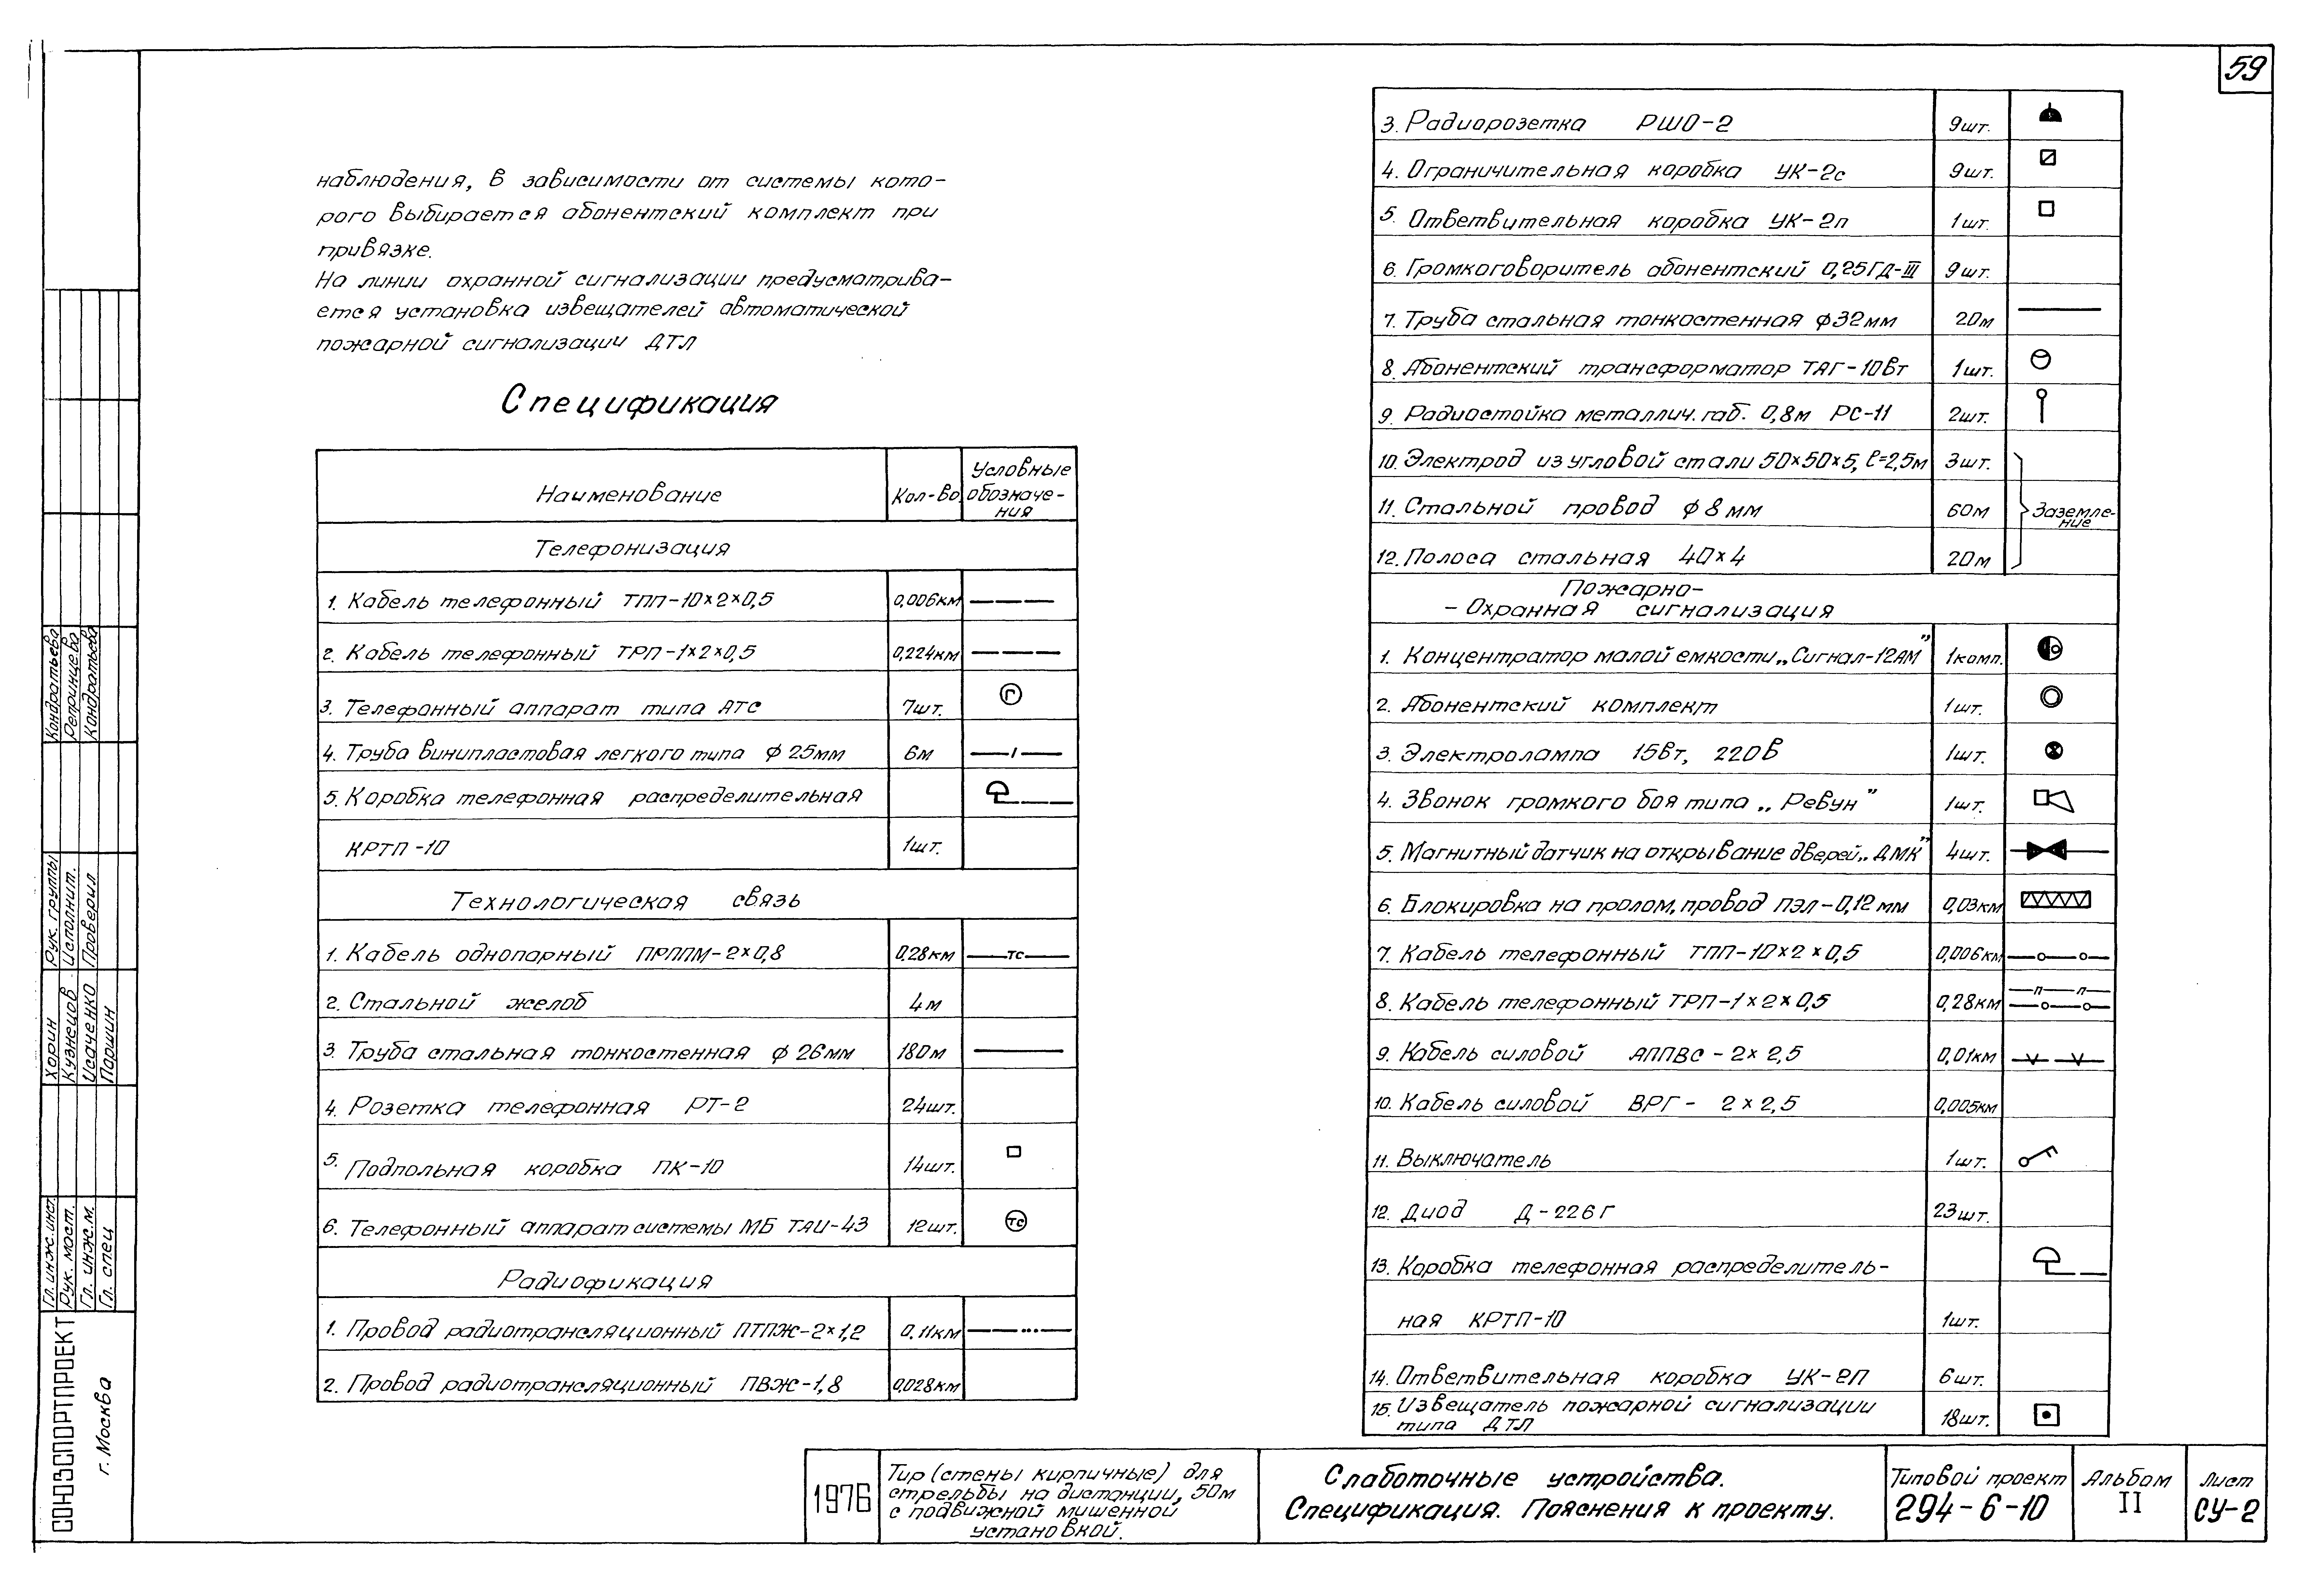 59
наблюдения, в зависимости от системы кото-
рого выбирается абонентский комплект при
привязке.
На линии охранной сигнализации предусматрива-
ется установка извещателей автоматической
пожарной сигнализации ДТЛ
Спецификация
Наименование Кол-во Условные обозначе-
ния
Телефонизация
1. Кабель телефонный ТПП-10×2×0,5 0,006км
2. Кабель телефонный ТРП-1×2×0,5 0,224км
3. Телефонный аппарат типа АТС 7шт. Г
4. Труба винипластовая легкого типа ф 25мм 6м
5. Коробка телефонная распределительная
КРТП-10 1шт.
Технологическая связь
1. Кабель однопарный ПРППМ-2×0,8 0,28км ТС
2. Стальной желоб 4м
3. Труба стальная тонкостенная ф 26мм 180м
4. Розетка телефонная РТ-2 24шт.
5. Подпольная коробка ПК-10 14шт.
6. Телефонный аппарат системы МБ ТАИ-43 12шт. ТС
Радиофикация
1. Провод радиотрансляционный ПТПЖ-2×1,2 0,11км
2. Провод радиотрансляционный ПВЖ-1,8 0,028км
3. Радиорозетка РШО-2 9шт.
4. Ограничительная коробка УК-2с 9шт.
5. Ответвительная коробка УК-2п 1шт.
6. Громкоговоритель абонентский 0,25ГД-III 9шт.
7. Труба стальная тонкостенная ф32мм 20м
8. Абонентский трансформатор ТАГ-10Вт 1шт.
9. Радиостойка металлич. габ. 0,8м РС-11 2шт.
10. Электрод из угловой стали 50×50×5, ℓ=2,5м 3шт.
11. Стальной провод ф 8мм 60м Заземле-
ние
12. Полоса стальная 40×4 20м
Пожарно-
- Охранная сигнализация
1. Концентратор малой емкости „Сигнал-12АМ" 1комп.
2. Абонентский комплект 1шт.
3. Электролампа 15вт, 220в 1шт.
4. Звонок громкого боя типа „Ревун" 1шт.
5. Магнитный датчик на открывание дверей „ДМК" 4шт.
6. Блокировка на пролом, провод ПЭЛ-0,12мм 0,03км
7. Кабель телефонный ТПП-10×2×0,5 0,006км
8. Кабель телефонный ТРП-1×2×0,5 0,28км п п
9. Кабель силовой АППВС-2×2,5 0,01км
10. Кабель силовой ВРГ- 2×2,5 0,005км
11. Выключатель 1шт.
12. Диод Д-226Г 23шт.
13. Коробка телефонная распределитель-
ная КРТП-10 1шт.
14. Ответвительная коробка УК-2П 6шт.
15. Извещатель пожарной сигнализации
типа ДТЛ 18шт.
Кондратьева
Репринцева
Кондратьева
Рук. группы
Исполнит.
Проверил
Хорин
Кузнецов
Исаченко
Паршин
Гл. инж. инст.
Рук. маст.
Гл. инж. м.
Гл. спец
СОЮЗСПОРТПРОЕКТ
г. Москва
1976
Тир (стены кирпичные) для
стрельбы на дистанции, 50м
с подвижной мишенной
установкой.
Слаботочные устройства.
Спецификация. Пояснения к проекту.
Типовой проект
294-6-10
Альбом
II
Лист
СУ-2